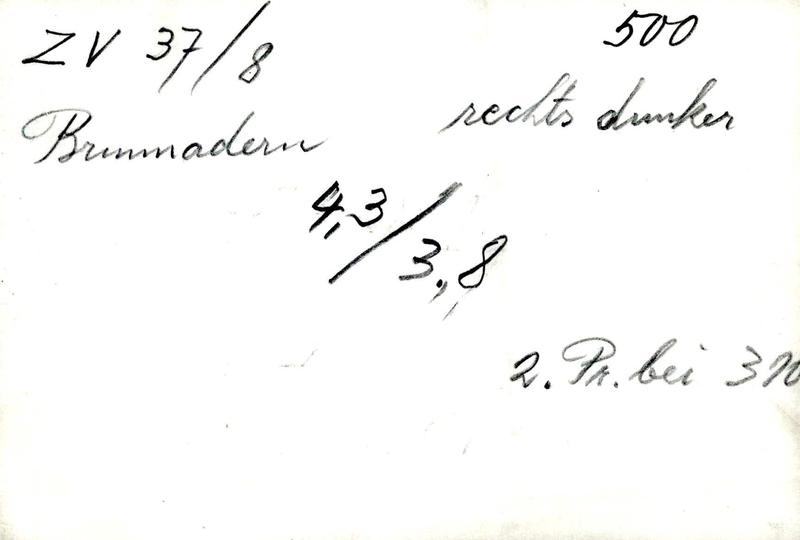 ZV 37/8
500
Brunnadern
rechts dunker
4,3/3,8
2. Pr. bei 370